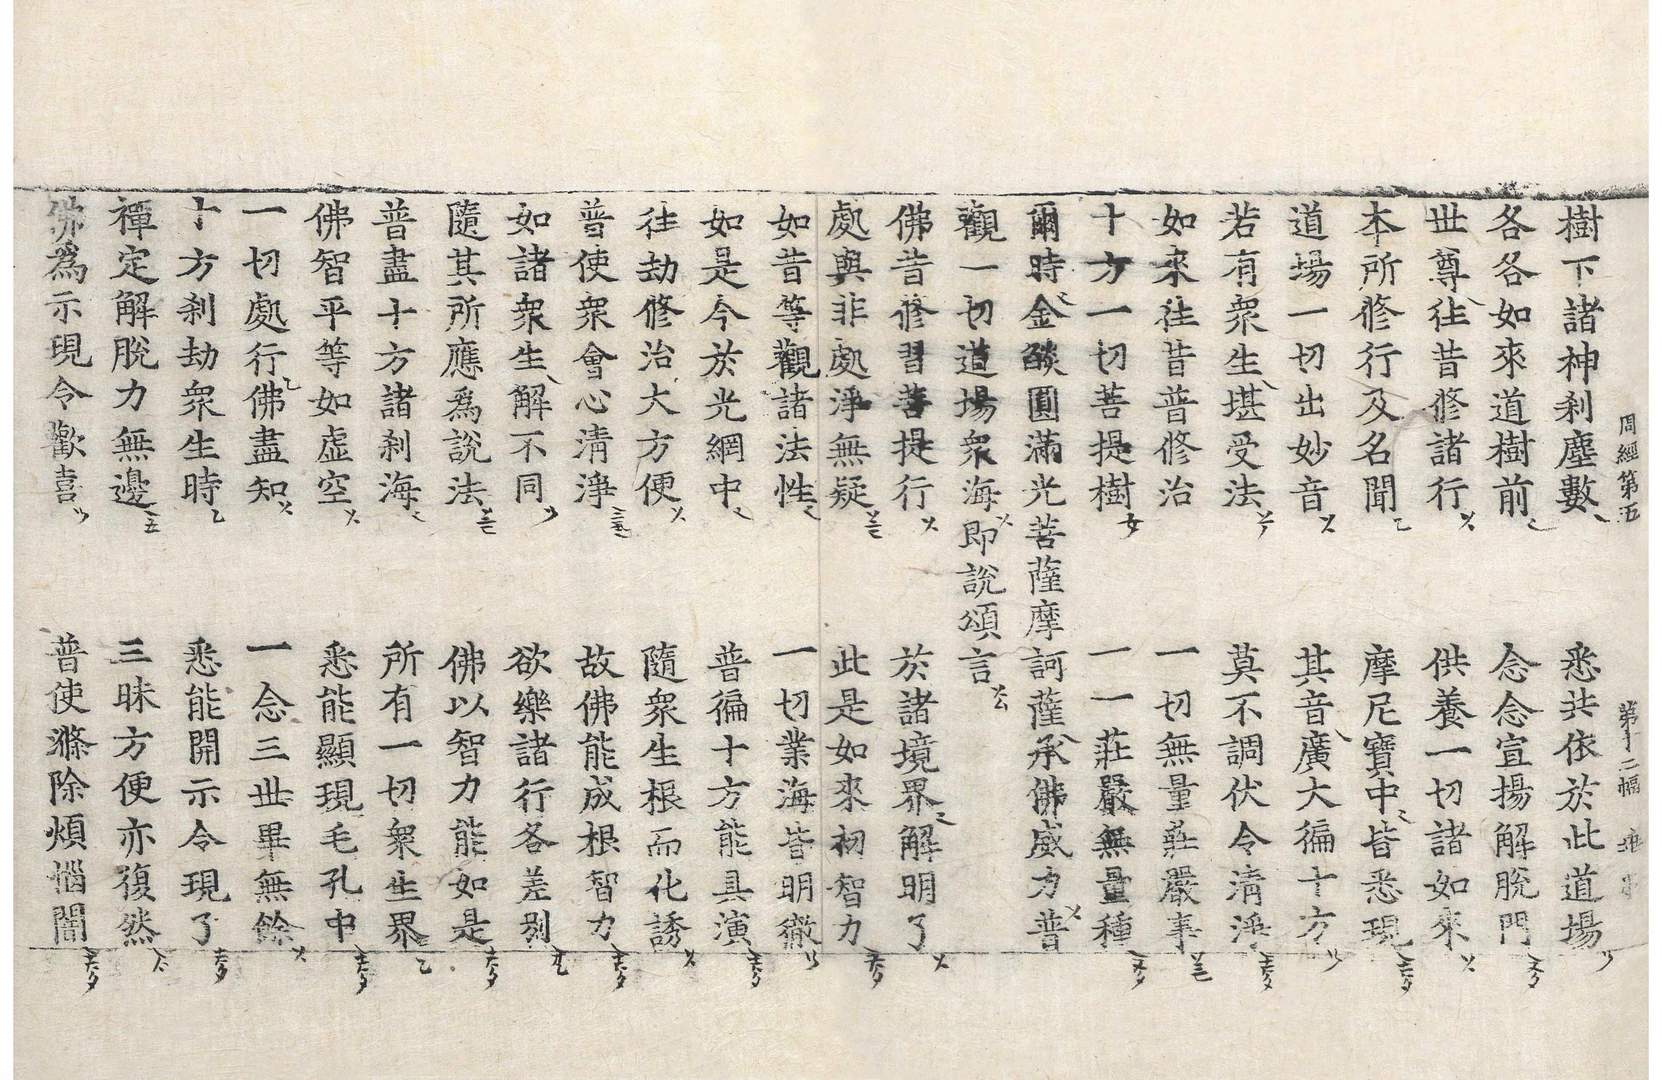 周經第五 第十二幅
樹下諸神刹塵數 悉共依於此道場
各各如來道樹前 念念宣揚解脫門
世尊往昔修諸行 供養一切諸如來
本所修行及名聞 摩尼寶中皆悉現
道場一切出妙音 其音廣大徧十方
若有衆生堪受法 莫不調伏令清淨
如來往昔普修治 一切無量莊嚴事
十方一切菩提樹 一一莊嚴無量種
爾時金燄圓滿光菩薩摩訶薩承佛威力普
觀一切道場衆海即說頌言
佛昔修習菩提行 於諸境界解明了
處與非處淨無疑 此是如來初智力
如昔等觀諸法性 一切業海皆明徹
如是今於光網中 普徧十方能具演
往劫修治大方便 隨衆生根而化誘
普使衆會心清淨 故佛能成根智力
如諸衆生解不同 欲樂諸行各差別
隨其所應爲說法 佛以智力能如是
普盡十方諸刹海 所有一切衆生界
佛智平等如虛空 悉能顯現毛孔中
一切處行佛盡知 一念三世畢無餘
十方刹劫衆生時 悉能開示令現了
禪定解脫力無邊 三昧方便亦復然
佛爲示現令歡喜 普使滌除煩惱闇